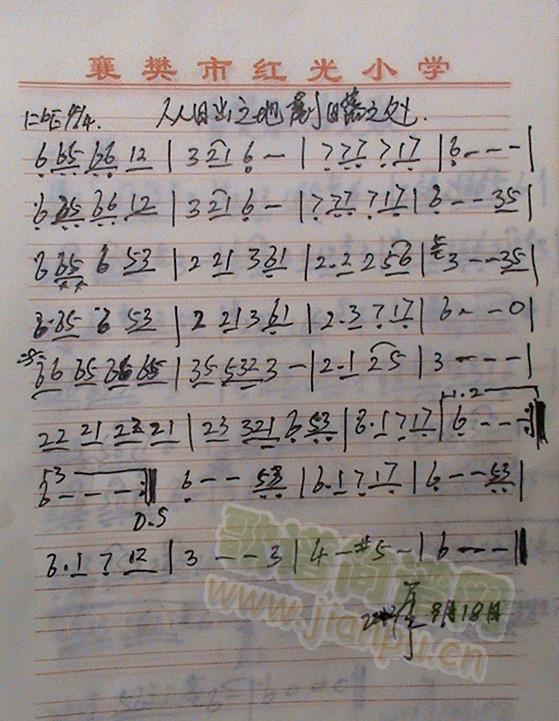 襄樊市红光小学
1=bE 4/4. 从日出之地到日落之处.
6 65 66 12 | 3 21 6 - | 7 77 7 17 | 6 - - - |
6 65 66 12 | 3 21 6 - | 7 77 7 17 | 6 - - 35 |
6 65 6 53 | 2 21 3 61 | 2·2 2 56 | 3 - - 35 |
6·65 6 53 | 2 21 3 61 | 2·3 7 17 | 6 - - 0 |
66 65 66 65 | 35 532 3 - | 2·1 25 | 3 - - - |
22 21 23 21 | 23 321 6 53 | 6·1 7 17 | 1.2 6 - - - :|
3 6 - - - :| 6 - - 53 | 6·1 7 17 | 6 - - 53 |
D.S
6·1 7 12 | 3 - - 3 | 4 - #5 - | 6 - - - ‖
9月18日
歌谱简谱网
www.jianpu.cn